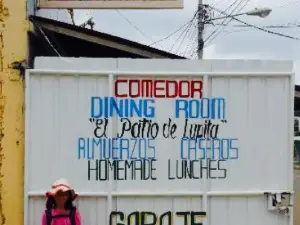 COMEDOR
DINING ROOM
"El Patio de Lupita"
ALMUERZOS CASEROS
HOMEMADE LUNCHES
GARAJE